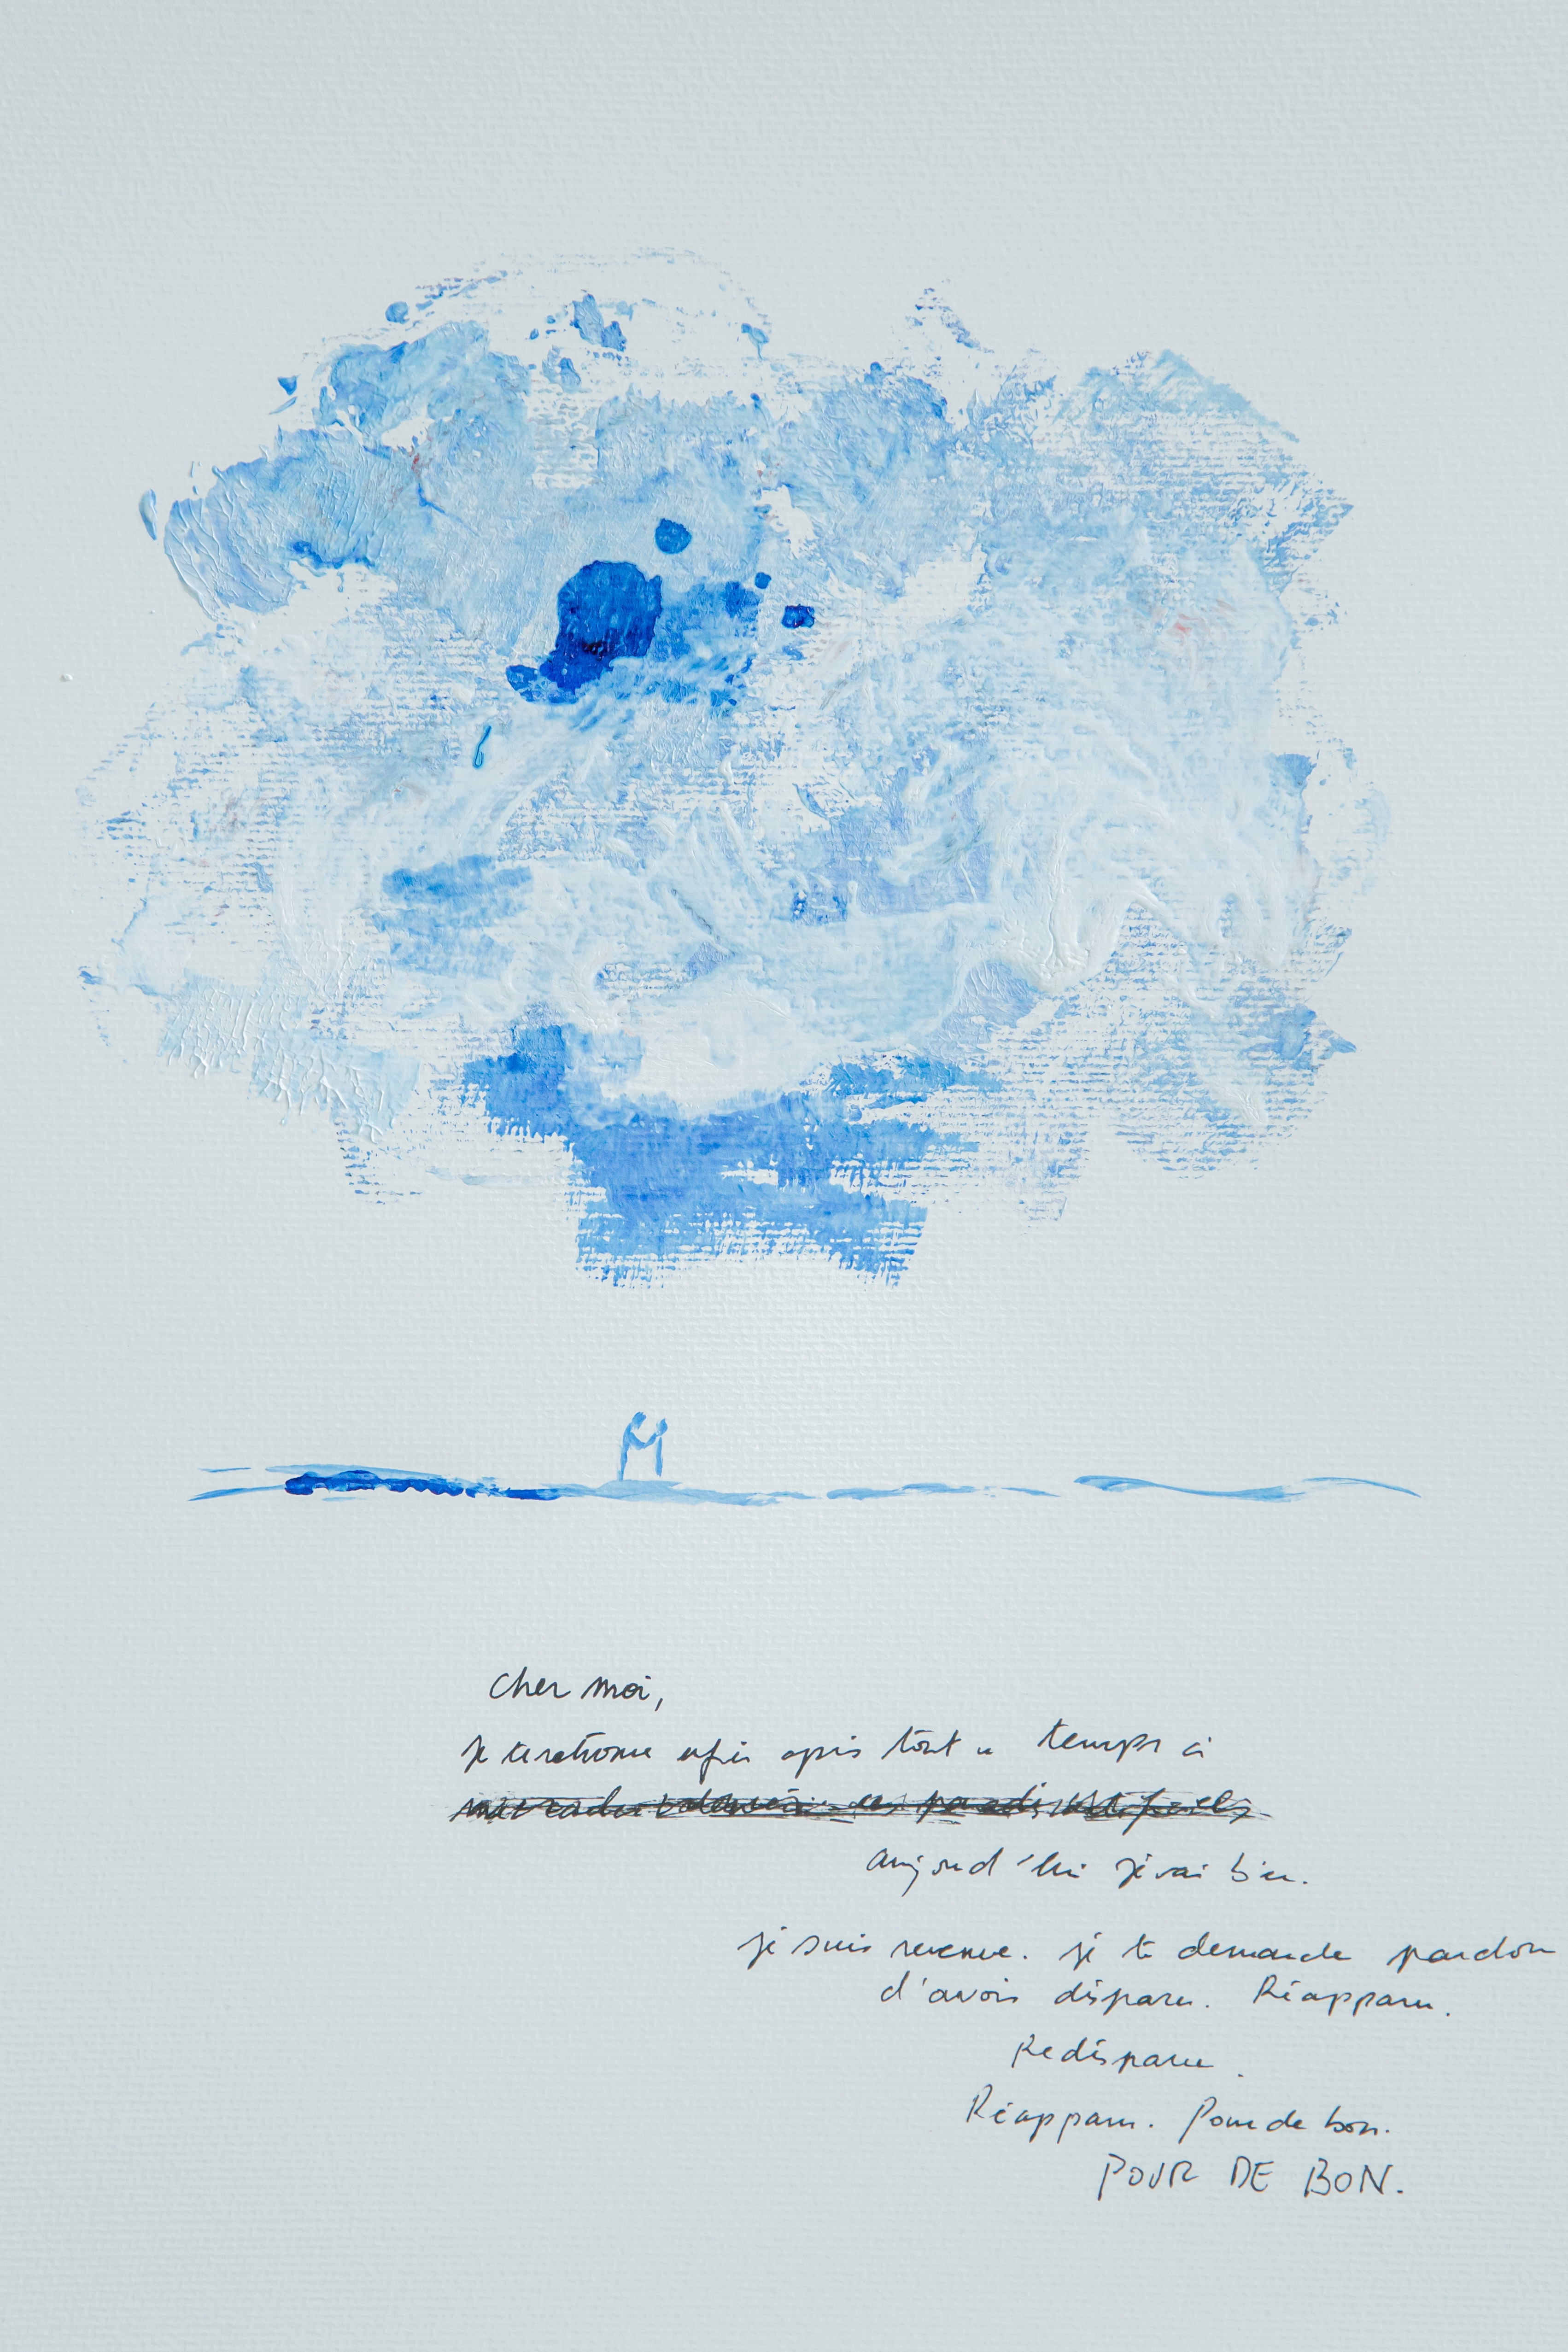 Cher moi,
je te retrouve enfin après tout ce temps à
aujourd'hui je vais bien.
je suis revenue. je te demande pardon
d'avoir disparu. Réapparu.
Redisparu.
Réapparu. Pour de bon.
POUR DE BON.